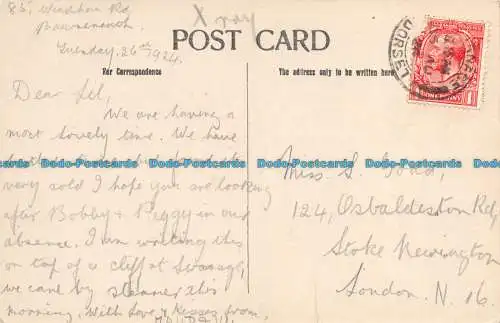 85, Windham Rd,
Bournemouth.
Tuesday, 26th 1924.
X ray
POST CARD
For Correspondence
The address only to be written here
DORSET
Dear Sil,
We are having a
most lovely time. We have
very sold I hope you are looking
after Bobby & Peggy in our
absence. I am writing this
on top of a cliff at Swanage,
we came by steamer this
morning. With Love & Kisses from,
Miss S. Gond,
124, Osbaldeston Rd,
Stoke Newington
London. N. 16.
Dodo-Postcards Dodo-Postcards Dodo-Postcards Dodo-Postcards
Dodo-Postcards Dodo-Postcards Dodo-Postcards Dodo-Postcards
Dodo-Postcards Dodo-Postcards Dodo-Postcards Dodo-Postcards